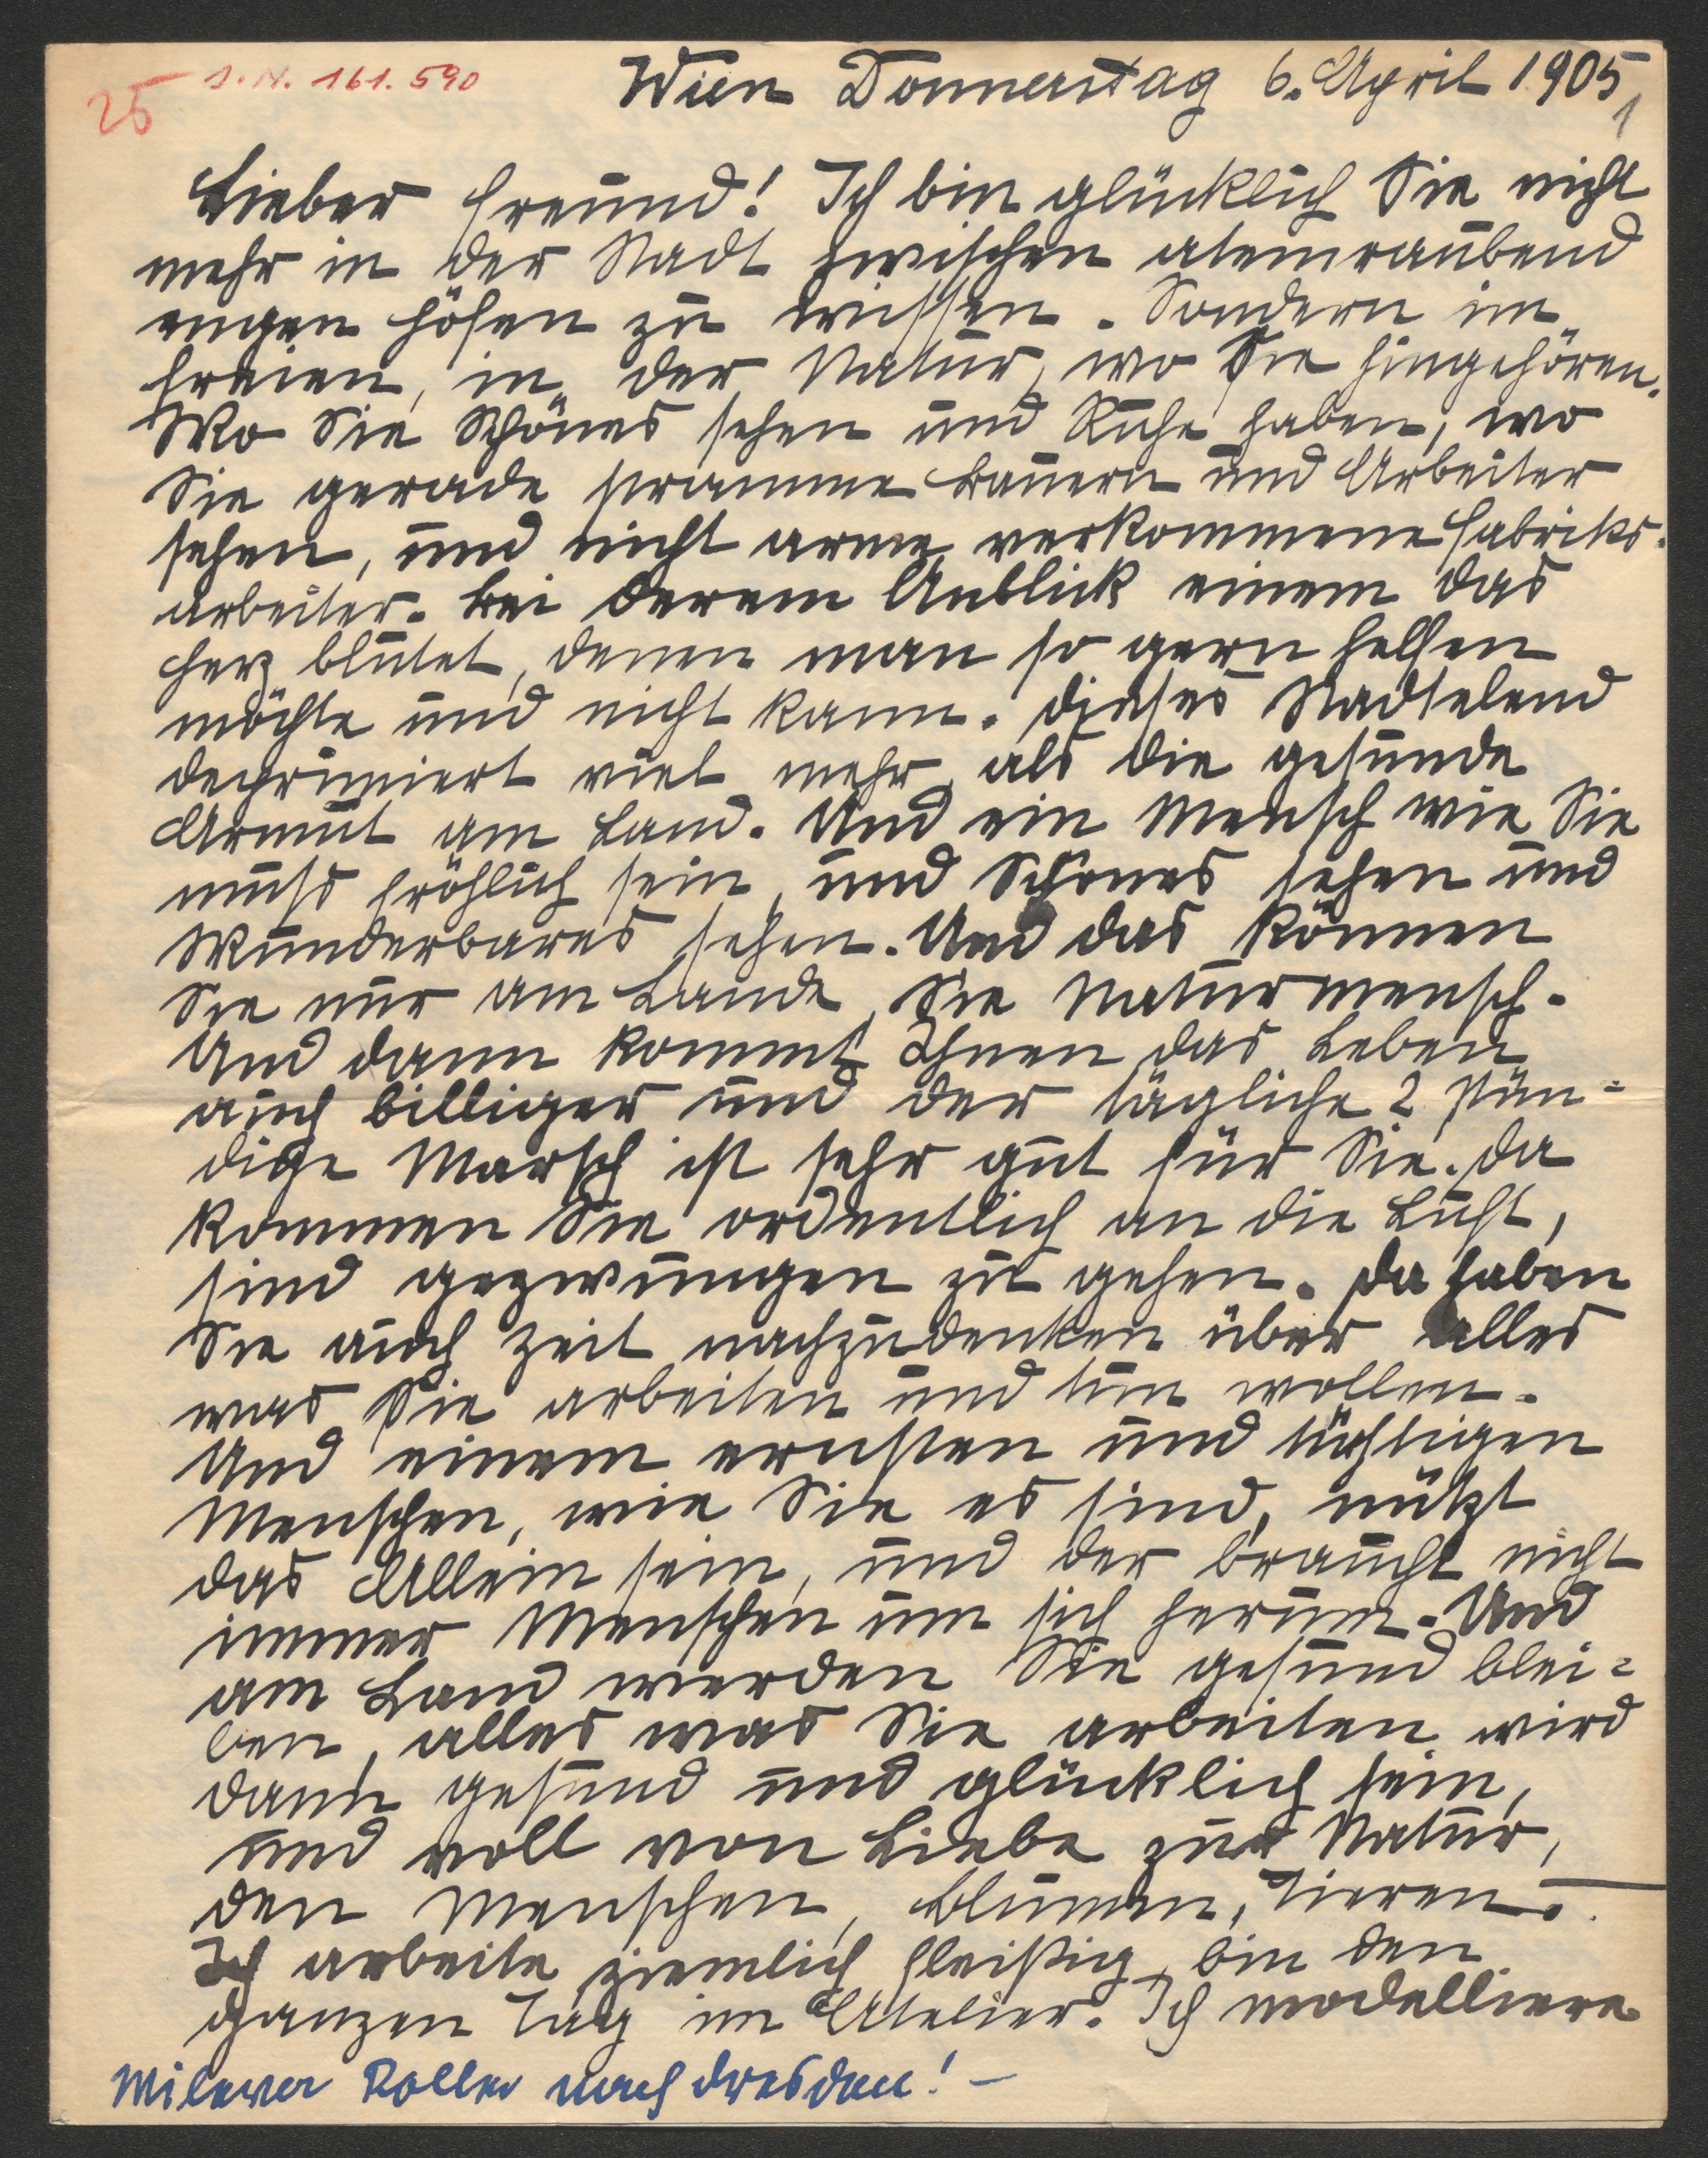 25
J.N. 161.590
Wien Donnerstag 6. April 1905
1
Lieber Freund! Ich bin glücklich Sie nicht
mehr in der Stadt zwischen atemraubend
engen Höfen zu wissen. Sondern im
Freien, in der Natur, wo Sie hingehören.
Wo Sie Schönes sehen und Ruhe haben, wo
Sie gerade stramme Bauern und Arbeiter
sehen, und nicht arme verkommene Fabriks-
arbeiter. Bei derem Anblick einem das
Herz blutet, denen man so gern helfen
möchte und nicht kann. Dieses Stadtelend
deprimiert viel mehr, als die gesunde
Armut am Land. Und ein Mensch wie Sie
muss fröhlich sein, und Schönes sehen und
Wunderbares sehen. Und das können
Sie nur am Lande, Sie Naturmensch.
Und dann kommt Ihnen das Leben
auch billiger und der tägliche 2 stün=
dige Marsch ist sehr gut für Sie. Da
kommen Sie ordentlich an die Luft,
sind gezwungen zu gehen. Da haben
Sie auch Zeit nachzudenken über alles
was Sie arbeiten und tun wollen.
Und einem ernsten und tüchtigen
Menschen, wie Sie es sind, nützt
das Allein sein, und der braucht nicht
immer Menschen um sich herum. Und
am Land werden Sie gesund blei=
ben, alles was Sie arbeiten wird
dann gesund und glücklich sein,
und voll von Liebe zur Natur,
den Menschen, Blumen, Tieren. –
Ich arbeite ziemlich fleißig, bin den
ganzen Tag im Atelier. Ich modelliere
Mileva Roller nach Dresden! –